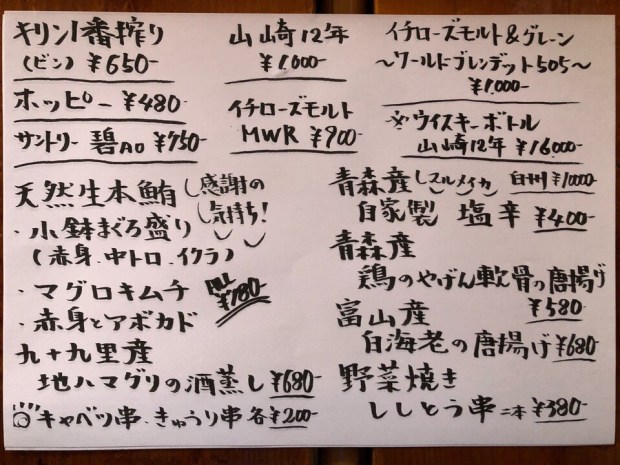 キリン1番搾り
(ビン) ¥650-
ホッピー ¥480-
サントリー 碧Ao ¥750-
山崎12年
¥1.000-
イチローズモルト
MWR ¥900-
イチローズモルト&グレーン
〜ワールドブレンデット505〜
¥1.000-
ウイスキーボトル
山崎12年 ¥16000-
白州 ¥10000-
天然生本鮪
感謝の
気持ち!
・小鉢まぐろ盛り
(赤身.中トロ.イクラ)
・マグロキムチ
・赤身とアボカド
ALL
¥780-
九十九里産
地ハマグリの酒蒸し ¥680-
キャベツ串.きゅうり串 各¥200-
青森産 スルメイカ
自家製 塩辛 ¥400-
青森産
鶏のやげん軟骨の唐揚げ
¥580-
富山産
白海老の唐揚げ ¥680-
野菜焼き
ししとう串 二本 ¥380-